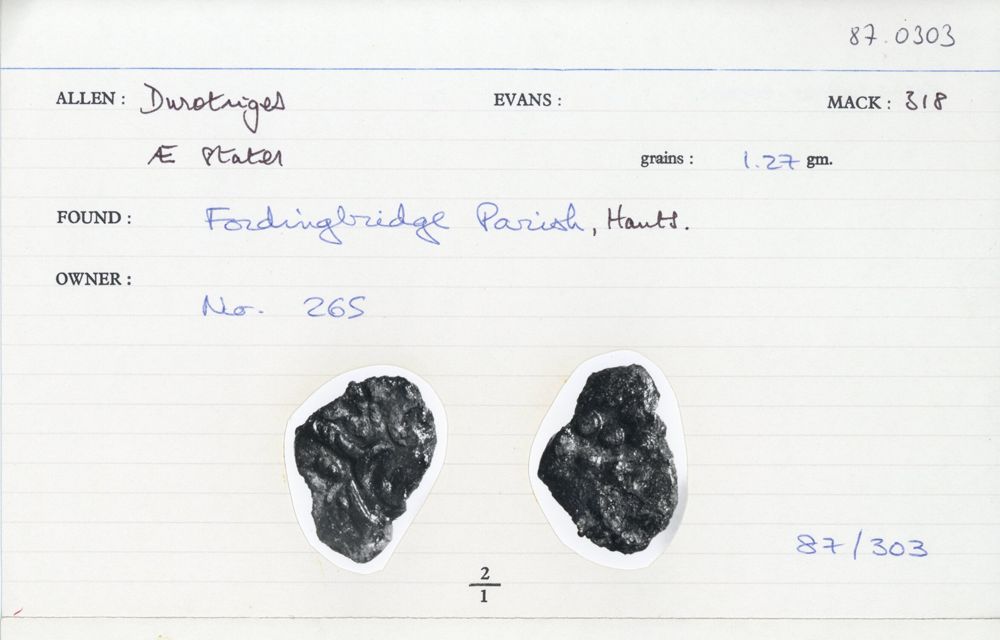 87.0303
ALLEN : Durotriges EVANS : MACK : 318
Æ Stater grains : 1.27 gm.
FOUND : Fordingbridge Parish, Hants.
OWNER :
No. 265
87/303
2
1